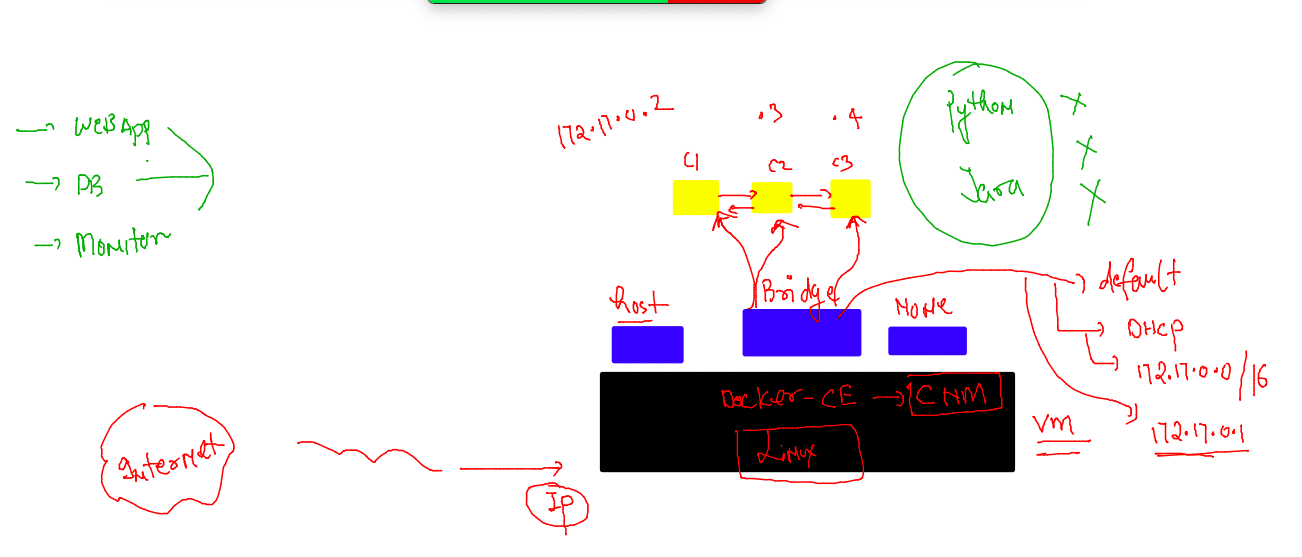 → WEB App
→ DB
→ Monitor
172.17.0.2
.3
.4
C1
C2
C3
Python
Java
host
Bridge
None
default
DHCP
172.17.0.0/16
172.17.0.1
Docker-CE → CNM
Linux
VM
Internet
IP